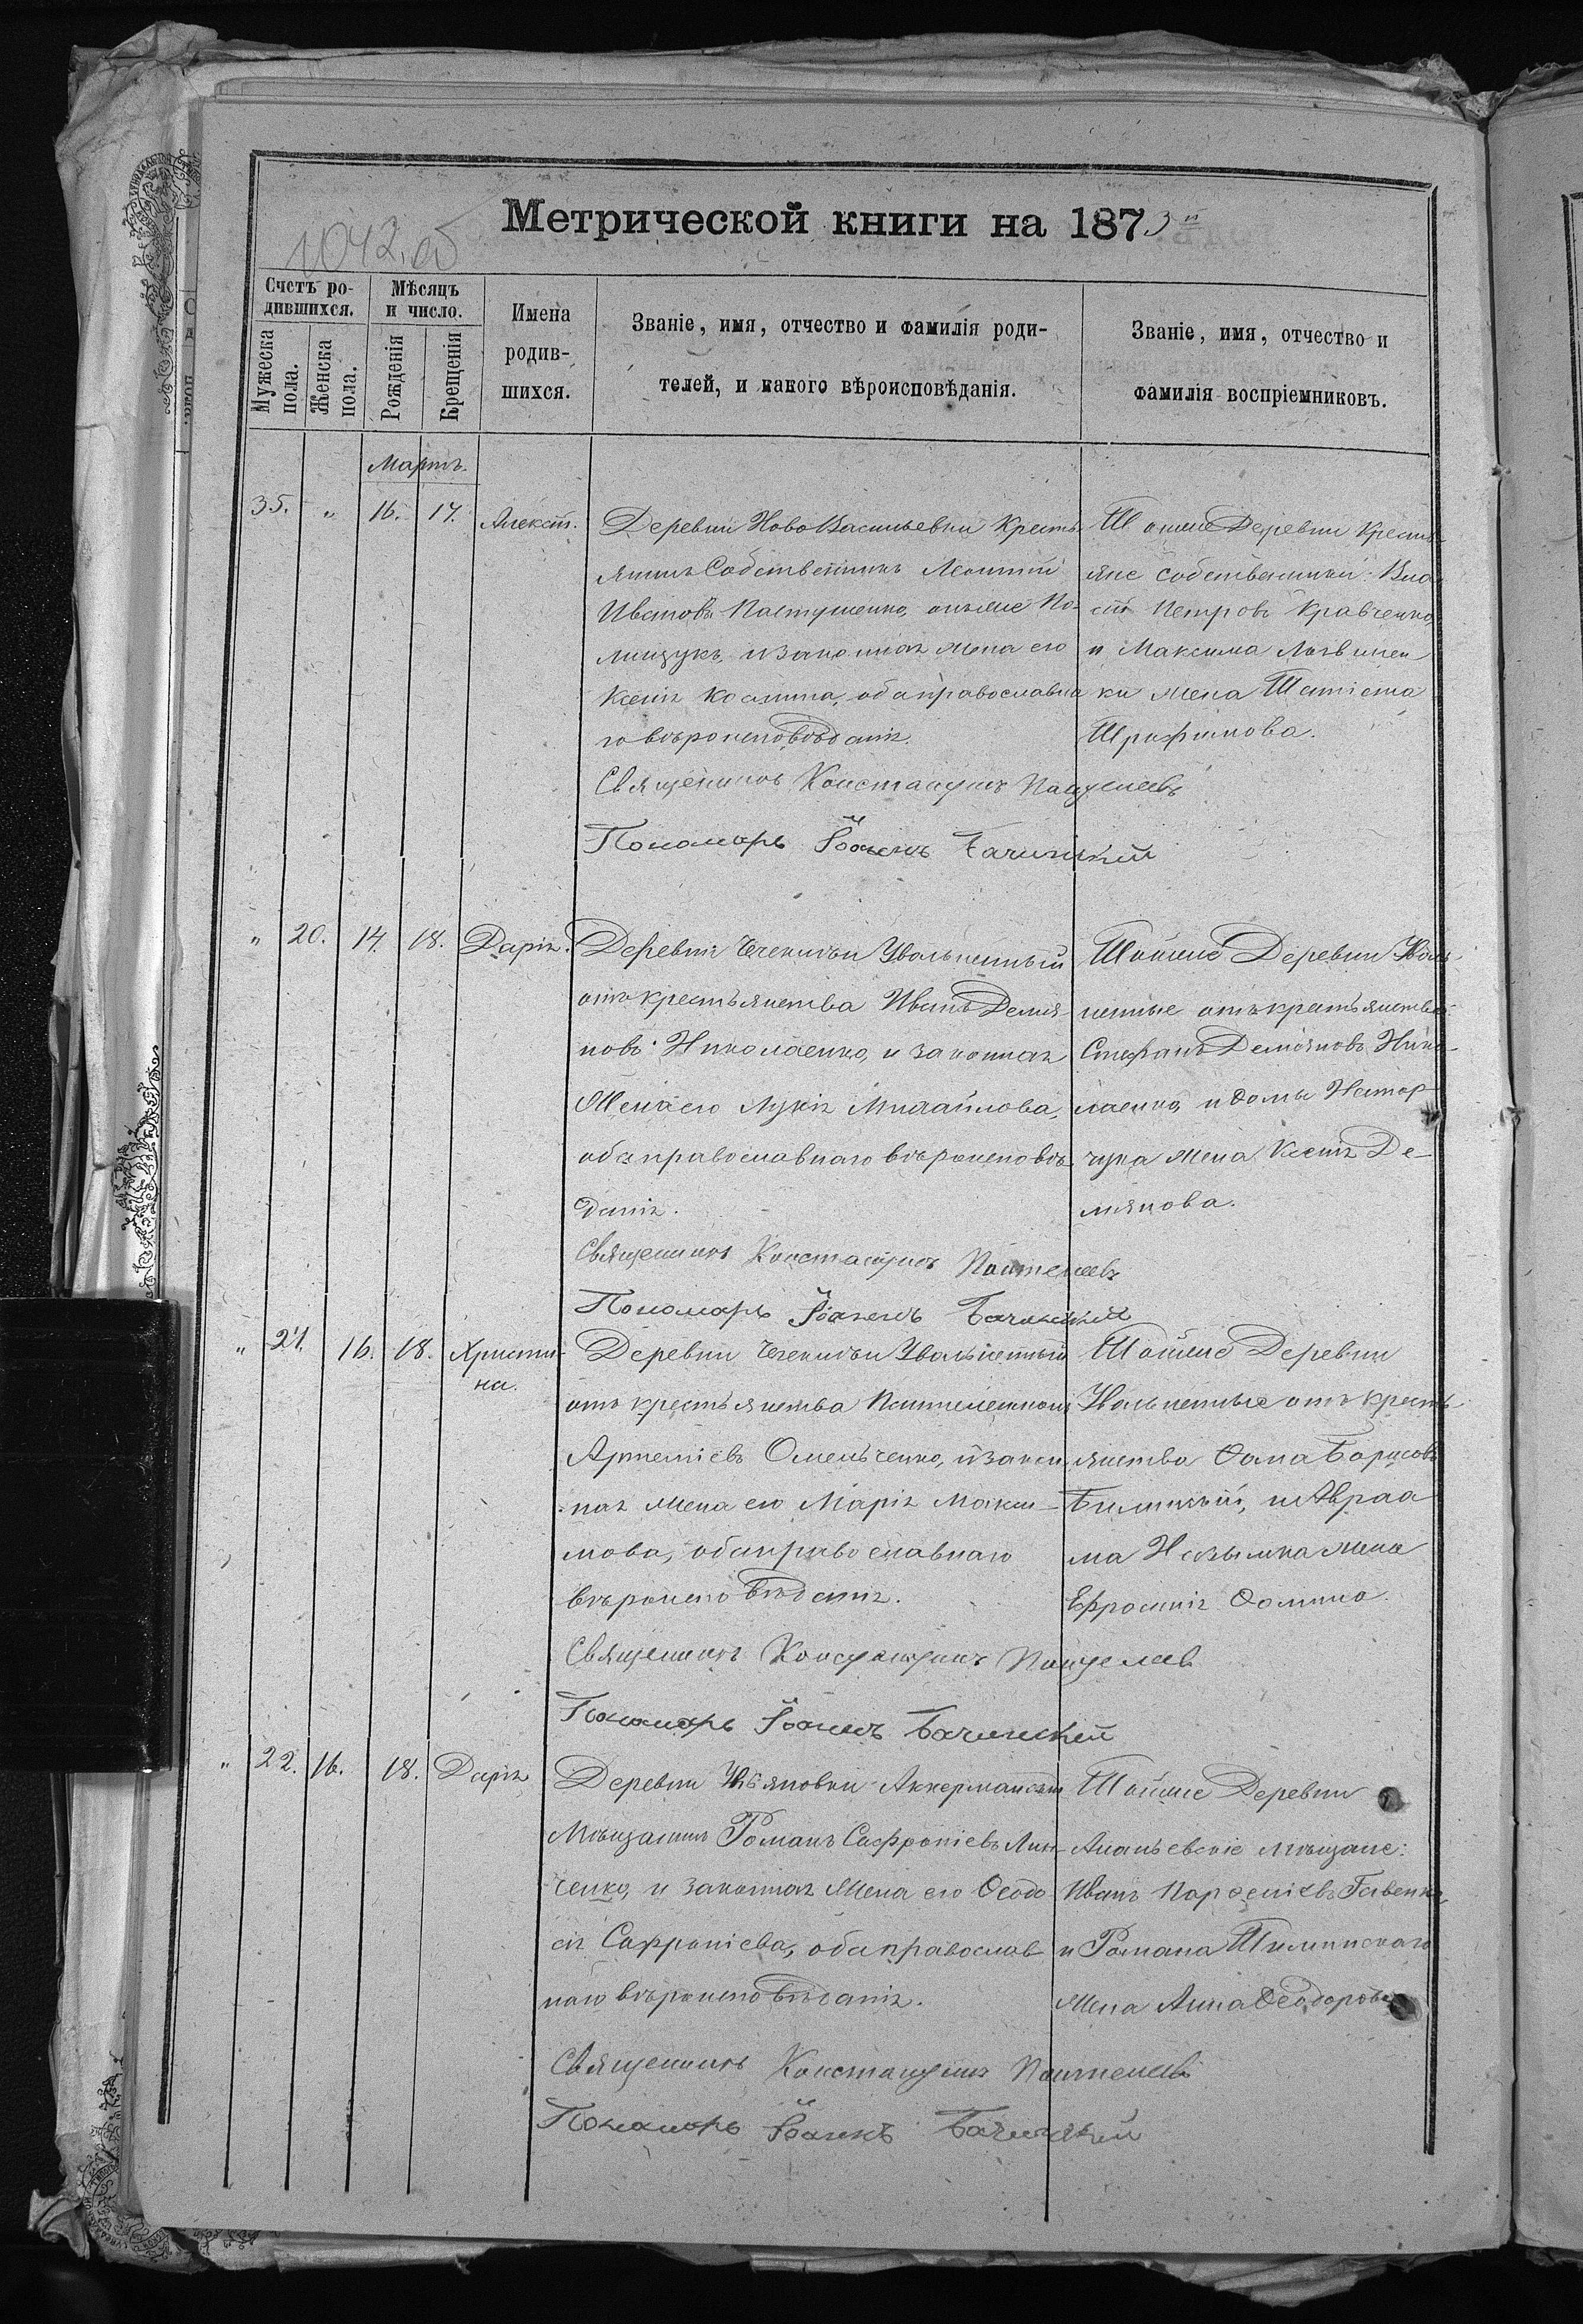 Метрической книги на 1873й
1042.об
Счетъ ро-
дившихся.
Мужеска пола.
Женска пола.
Мѣсяцъ
и число.
Рожденія
Крещенія
Имена
родив-
шихся.
Званіе, имя, отчество и фамилія роди-
телей, и какого вѣроисповѣданія.
Званіе, имя, отчество и
фамилія воспріемниковъ.
Мартъ.
35. " 16. 17. Алексѣй.
Деревни НовоВасильевки Кресть
янинъ Собственникъ Леонтій
Ивановъ Пастушенко, онъже По-
лищукъ, и законная жена его
Ксенія Космина, оба православна
го вѣроисповѣданія.
Священникъ Константинъ Пантелеевъ
Пономарь Іоаннъ Бачинскій
Тойже Деревни Кресть
яне собственники: Вла
сій Петровъ Кравченко,
и Максима Литвинен
ки жена Татіана
Трофимова.
" 20. 14. 18. Дарія.
Деревни Чечкилѣи Увольненный
отъ крестьянства Иванъ Демья-
новъ Николаенко, и законная
Жена его Лукія Михайлова,
оба православнаго вѣроисповѣ-
данія.
Священникъ Константинъ Пантелеевъ
Пономарь Іоаннъ Бачинскій
Тойже Деревни Уволь-
ненные отъ крестьянства:
Стефанъ Деміановъ Нико-
лаенко, и Фомы Нестор
чука жена Ксенія Де-
мянова.
" 21. 16. 18. Христи-
на.
Увольненный
отъ крестьянства Пантелеимонъ
Артеміевъ Омельченко, и закон
ная жена его Марія Макси-
мова, оба православнаго
вѣроисповѣданія.
Священникъ Константинъ Пантелеевъ
Пономарь Іоаннъ Бачинскій
Тойже Деревни
Увольненные отъ кресть
янства Фома Борисовъ
и Авраа
ма жена
Ефросинія Фомина.
" 22. 16. 18. Дарія
Деревни Ульяновки Аккерманскій
Мѣщанинъ Романъ Сафроніевъ Лин-
ченко, и законная Жена его Феодо
сія Сафроніева, оба православ
наго вѣроисповѣданія.
Священникъ Константинъ Пантелеевъ
Пономарь Іоаннъ Бачинскій
Тойже Деревни
Ананьевскіе мѣщане:
Иванъ Парфеніевъ
и Романа
Жена Анна Феодорова